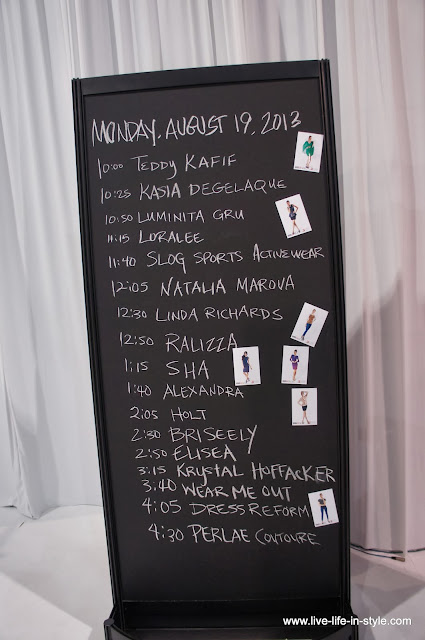 MONDAY, AUGUST 19, 2013
10:00 TEDDY KAFIF
10:25 KASIA DEGELAQUE
10:50 LUMINITA GRU
11:15 LORALEE
11:40 SLOG SPORTS ACTIVEWEAR
12:05 NATALIA MAROVA
12:30 LINDA RICHARDS
12:50 RALIZZA
1:15 SHA
1:40 ALEXANDRA
2:05 HOLT
2:30 BRISEELY
2:50 ELISEA
3:15 KRYSTAL HOFFACKER
3:40 WEAR ME OUT
4:05 DRESS REFORM
4:30 PERLAE COUTOURE
www.live-life-in-style.com